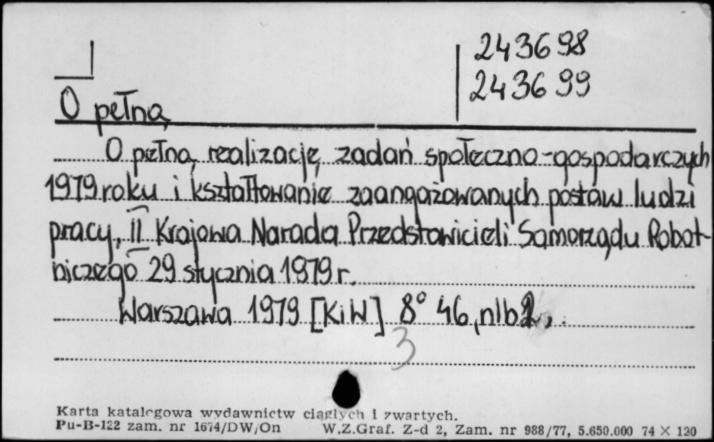 243698
243699
O pełną
O pełną realizację zadań społeczno-gospodarczych
1979 roku i kształtowanie zaangażowanych postaw ludzi
pracy, II Krajowa Narada Przedstawicieli Samorządu Robot-
niczego 29 stycznia 1979 r.
Warszawa 1979 [KiW] 8° 46, nlb 2,
3
Karta katalogowa wydawnictw ciągłych i zwartych.
Pu-B-122 zam. nr 1674/DW/On W.Z.Graf. Z-d 2, Zam. nr 988/77, 5.650.000 74 X 120